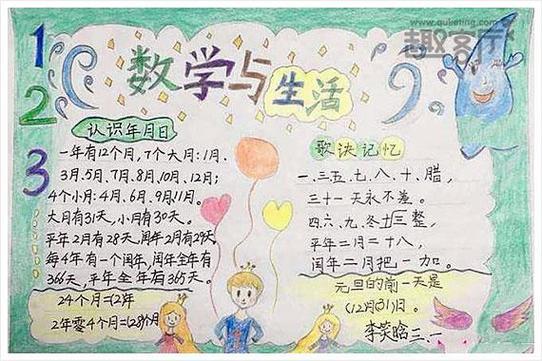 www.quketing.com
趣客厅
1
2
3
数学与生活
认识年月日
一年有12个月,7个大月:1月、
3月、5月、7月、8月、10月、12月;
4个小月:4月、6月、9月、11月。
大月有31天,小月有30天。
平年2月有28天,闰年2月有29天。
每4年有一个闰年,闰年全年有
366天,平年全年有365天。
24个月=(2)年
2年零4个月=(28)个月
歌诀记忆
一、三、五、七、八、十、腊,
三十一天永不差。
四、六、九、冬十三整,
平年二月二十八,
闰年二月把一加。
元旦的前一天是
(12月31)日。
三、一